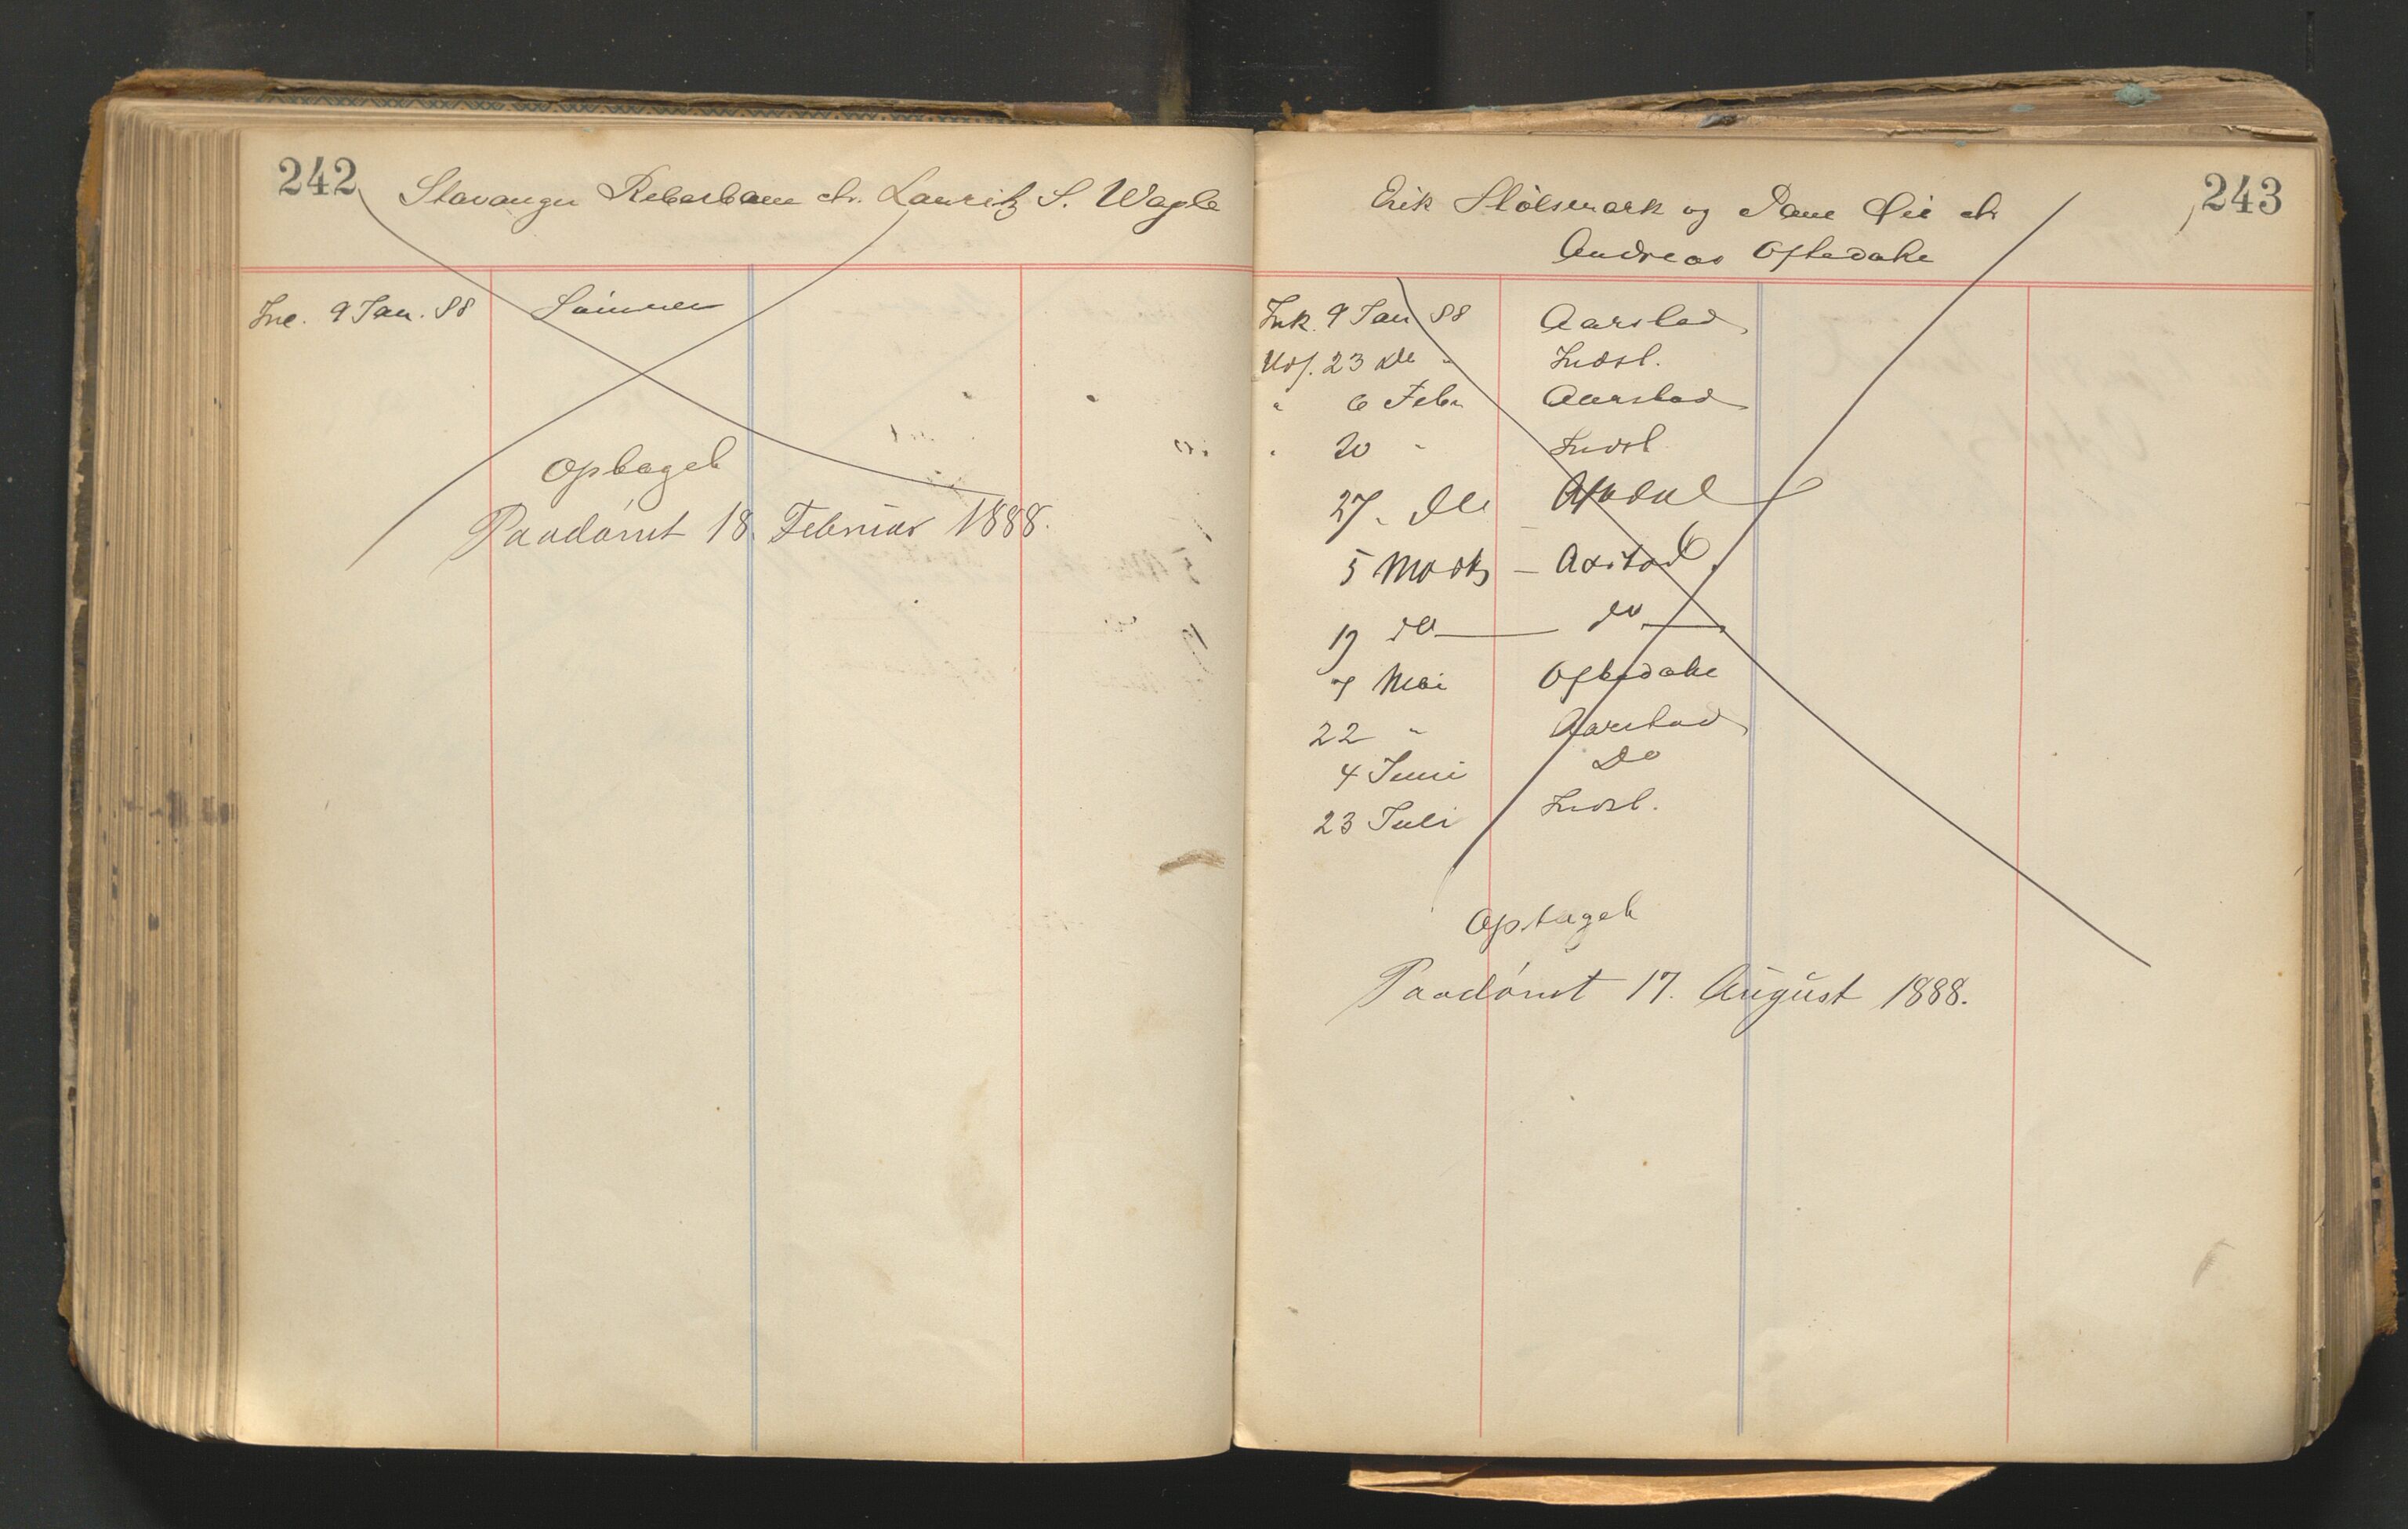 242
Stavanger Reberbane ctr. Lauritz S. Wagle
Ink. 9 Jan. 88 Sømmer
Optaget
Paadømt 18. Februar 1888.
243
Erik Stølsmark og Rane Øie ctr
Andreas Oftedahl
Ink. 9 Jan 88 Aarstad
Uds. 23 do " Indst.
" 6 Febr Aarstad
" 20 " Indst
27. do Oftedal
5 Marts – Aarstad
19 do do
7 Mai Oftedahl
22 " Aarstad
4 Juni Do
23 Juli Indst.
Optaget
Paadømt 17. August 1888.